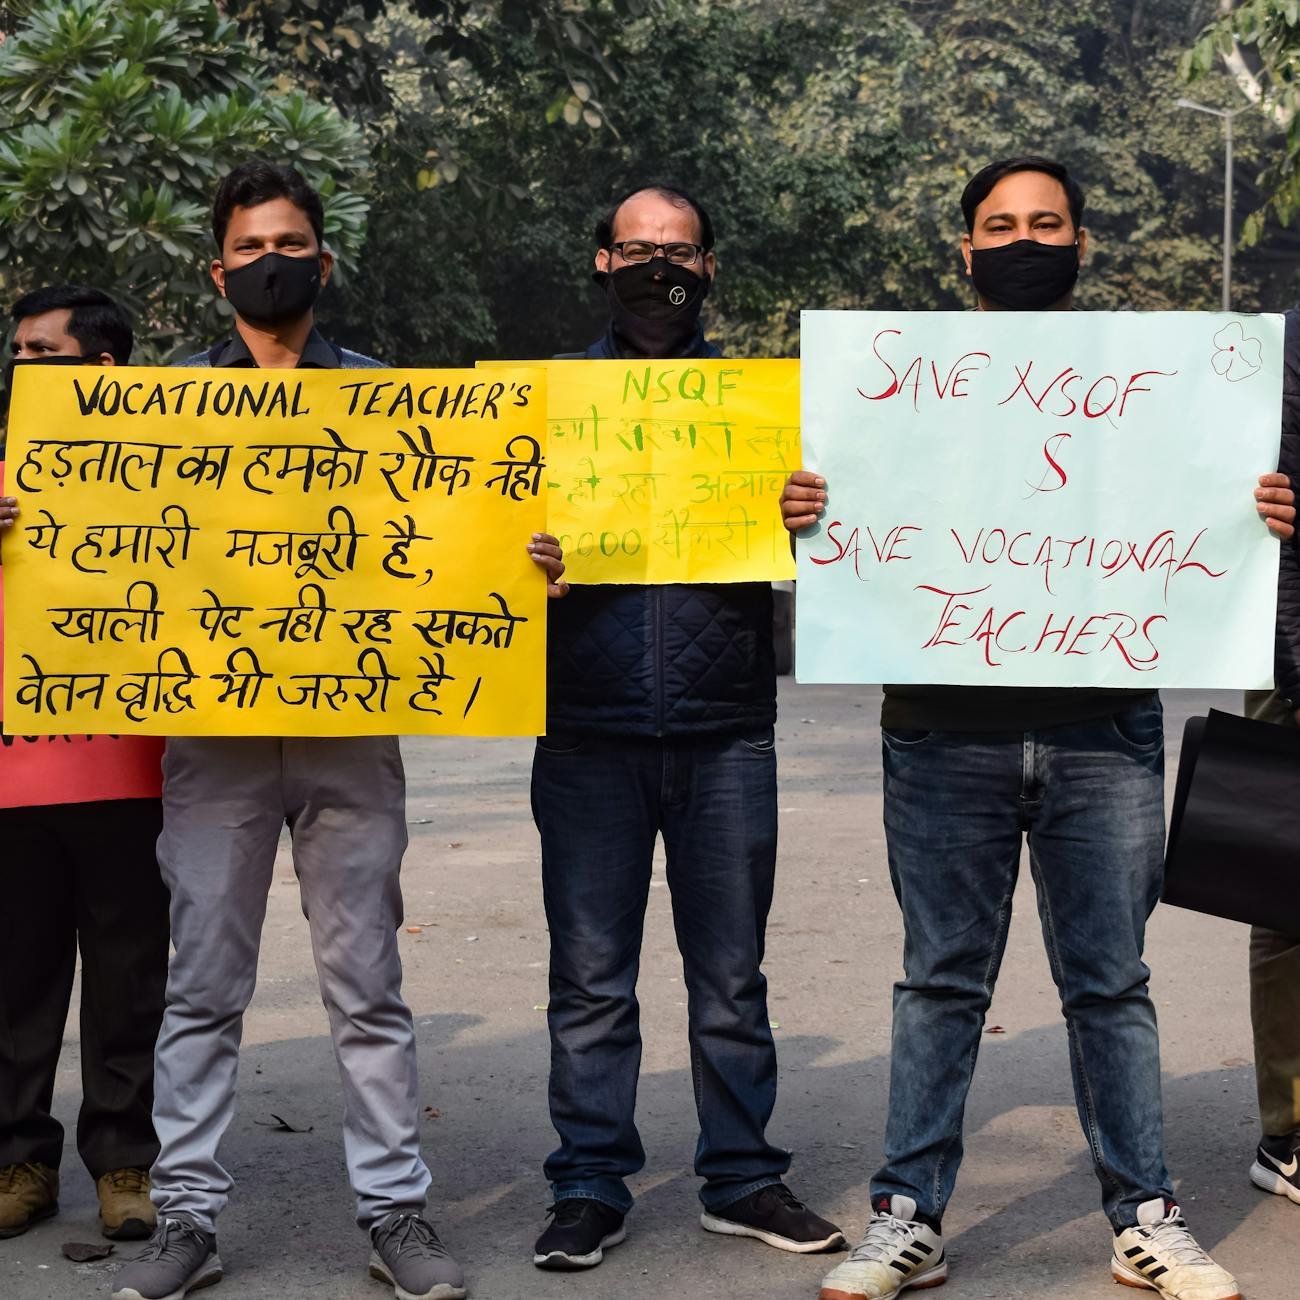 VOCATIONAL TEACHER'S
हड़ताल का हमको शौक नहीं
ये हमारी मजबूरी है,
खाली पेट नही रह सकते
वेतन वृद्धि भी जरुरी है।
NSQF
सरकारी स्कूल
हो रहा अत्याचा
0000 सैलरी।
SAVE NSQF
$
SAVE VOCATIONAL
TEACHERS